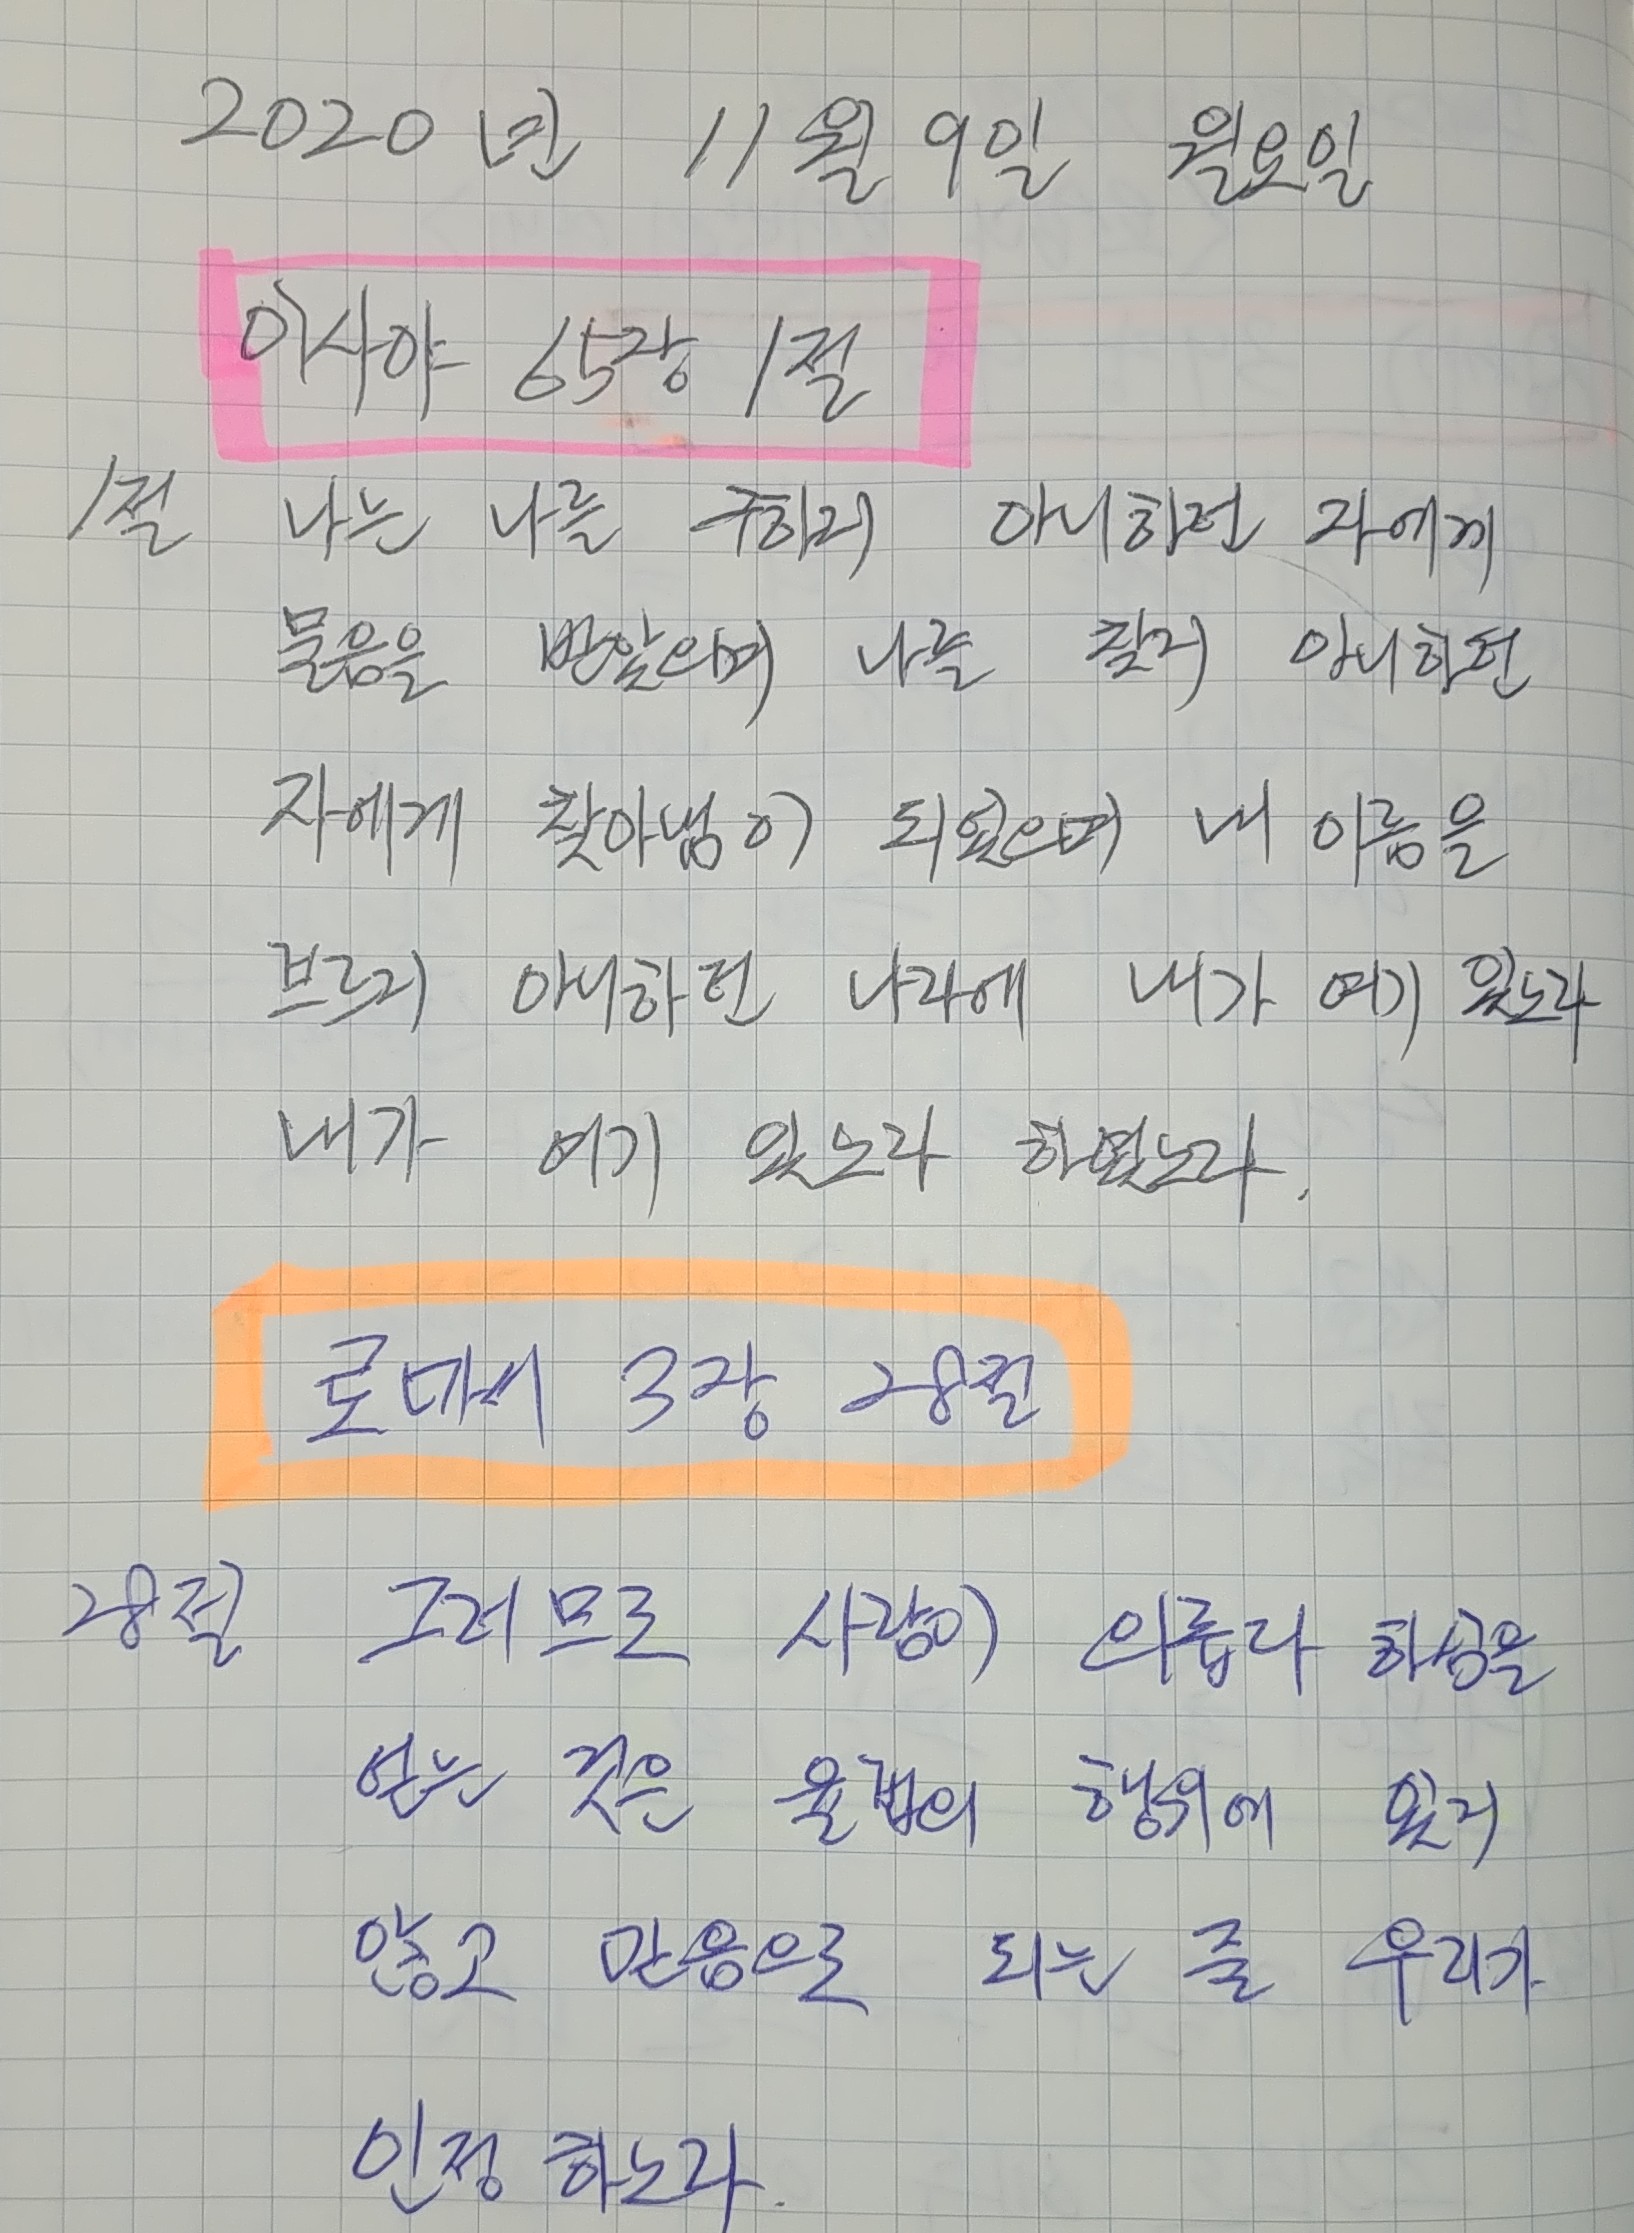 2020년 11월 9일 월요일
이사야 65장 1절
1절 나는 나를 구하지 아니하던 자에게
물음을 받았으며 나를 찾지 아니하던
자에게 찾아냄이 되었으며 내 이름을
부르지 아니하던 나라에 내가 여기 있노라
내가 여기 있노라 하였노라.
로마서 3장 28절
28절 그러므로 사람이 의롭다 하심을
얻는 것은 율법의 행위에 있지
않고 믿음으로 되는 줄 우리가
인정 하노라.